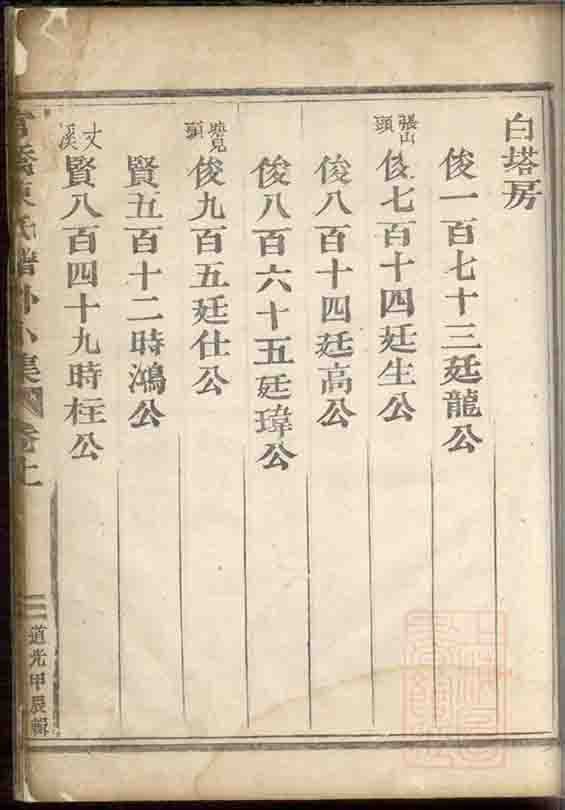 白塔房
俊一百七十三廷龍公
張山頭
俊七百十四廷生公
俊八百十四廷高公
俊八百六十五廷瑋公
頭
俊九百五廷仕公
賢五百十二時鴻公
丈溪
賢八百四十九時柱公
橋陳氏譜外小集
卷上
道光甲辰輯